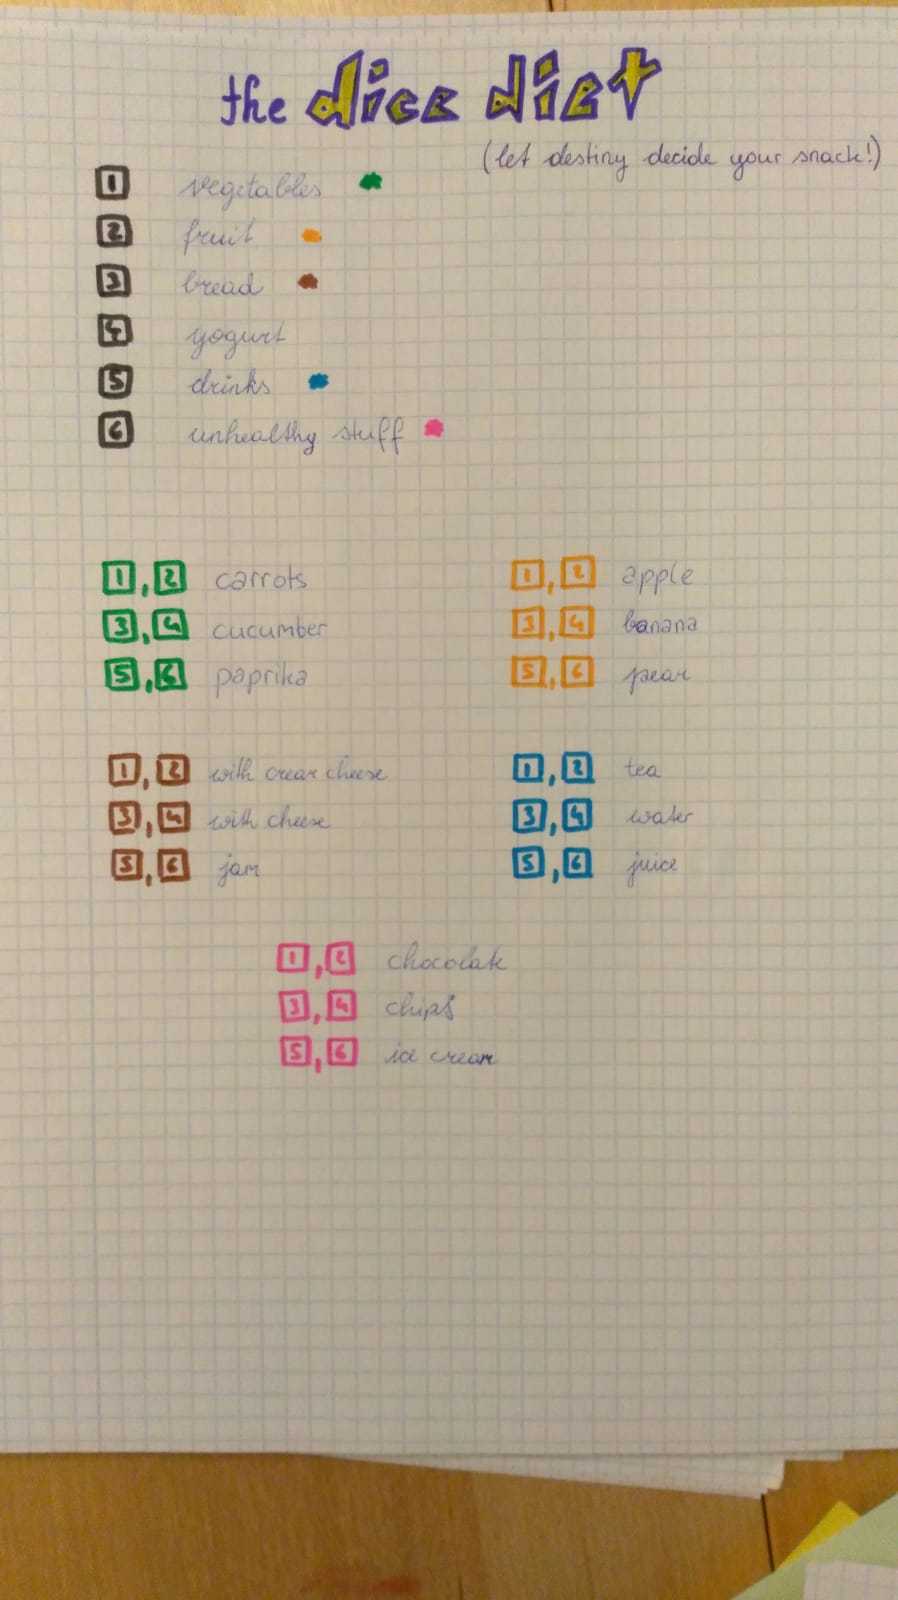 the dice diet
(let destiny decide your snack!)
1 vegetables
2 fruit
3 bread
4 yogurt
5 drinks
6 unhealthy stuff
1, 2 carrots
3, 4 cucumber
5, 6 paprika
1, 2 apple
3, 4 banana
5, 6 pear
1, 2 with cream cheese
3, 4 with cheese
5, 6 jam
1, 2 tea
3, 4 water
5, 6 juice
1, 2 chocolate
3, 4 chips
5, 6 ice cream